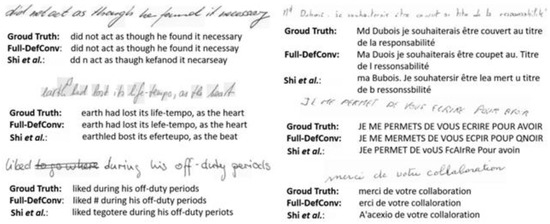 did not act as though he found it necessary
Groud Truth: did not act as though he found it necessary
Full-DefConv: did not act as though he found it necessay
Shi et al.: dd n act as though kefanod it necarseay
earth had lost its life-tempo, as the heart
Groud Truth: earth had lost its life-tempo, as the heart
Full-DefConv: earth had lost its lefe-tempo, as the heart
Shi et al.: earthled bost its eferteupo, as the beat
liked to go where during his off-duty periods
Groud Truth: liked during his off-duty periods
Full-DefConv: liked # during his off-duty periods
Shi et al.: liked tegotere during his off-duty periots
Md Dubois je souhaiterais être couvert au titre de la responsabilité
Groud Truth: Md Dubois je souhaiterais être couvert au titre
de la responsabilité
Full-DefConv: Ma Duois je souhaiterais être coupet au. Titre
de l ressonsabilité
Shi et al.: ma Bubois. Je souhatersir être lea mert u titre
de b ressonssbilité
JE ME PERMET DE VOUS ECRIRE POUR AVOIR
Groud Truth: JE ME PERMETS DE VOUS ECRIRE POUR AVOIR
Full-DefConv: JE ME MERMETS DE VOUS ECPIR POUP QNOIR
Shi et al.: JEe PERMET DE voUS FcAIrRe Pour avoin
merci de votre collaboration
Groud Truth: merci de votre collaboration
Full-DefConv: erci de votre collaboration
Shi et al.: A'acexio de votre collaration